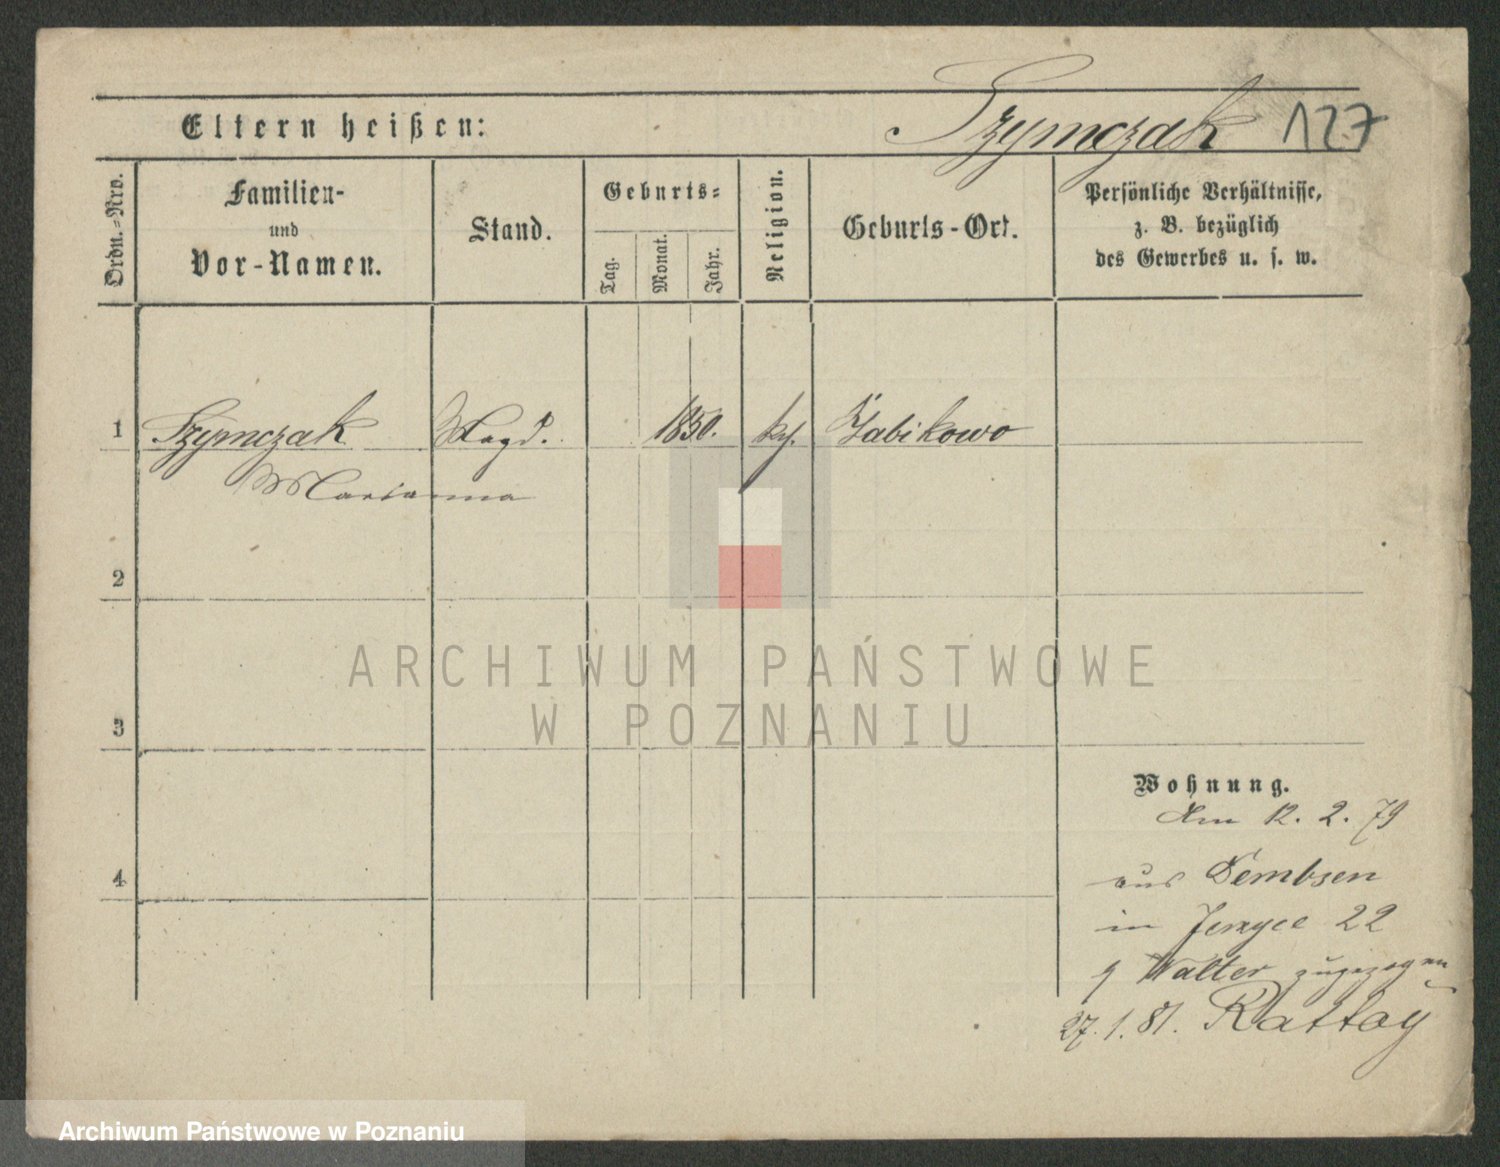 Eltern heißen:
Szymczak 127
Ordn.=Nro.
Familien-
und
Vor-Namen.
Stand.
Geburts=
Tag.
Monat.
Jahr.
Religion.
Geburts-Ort.
Persönliche Verhältnisse,
z. B. bezüglich
des Gewerbes u. s. w.
1 Szymczak Magd. 1850. kth. Żabikowo
Marianna
2
3
4
ARCHIWUM PAŃSTWOWE
W POZNANIU
Wohnung.
Am 12. 2. 79
aus Dembsen
in Jersyce 22
Walter zugezogen
27. 1. 81. Rattay
Archiwum Państwowe w Poznaniu